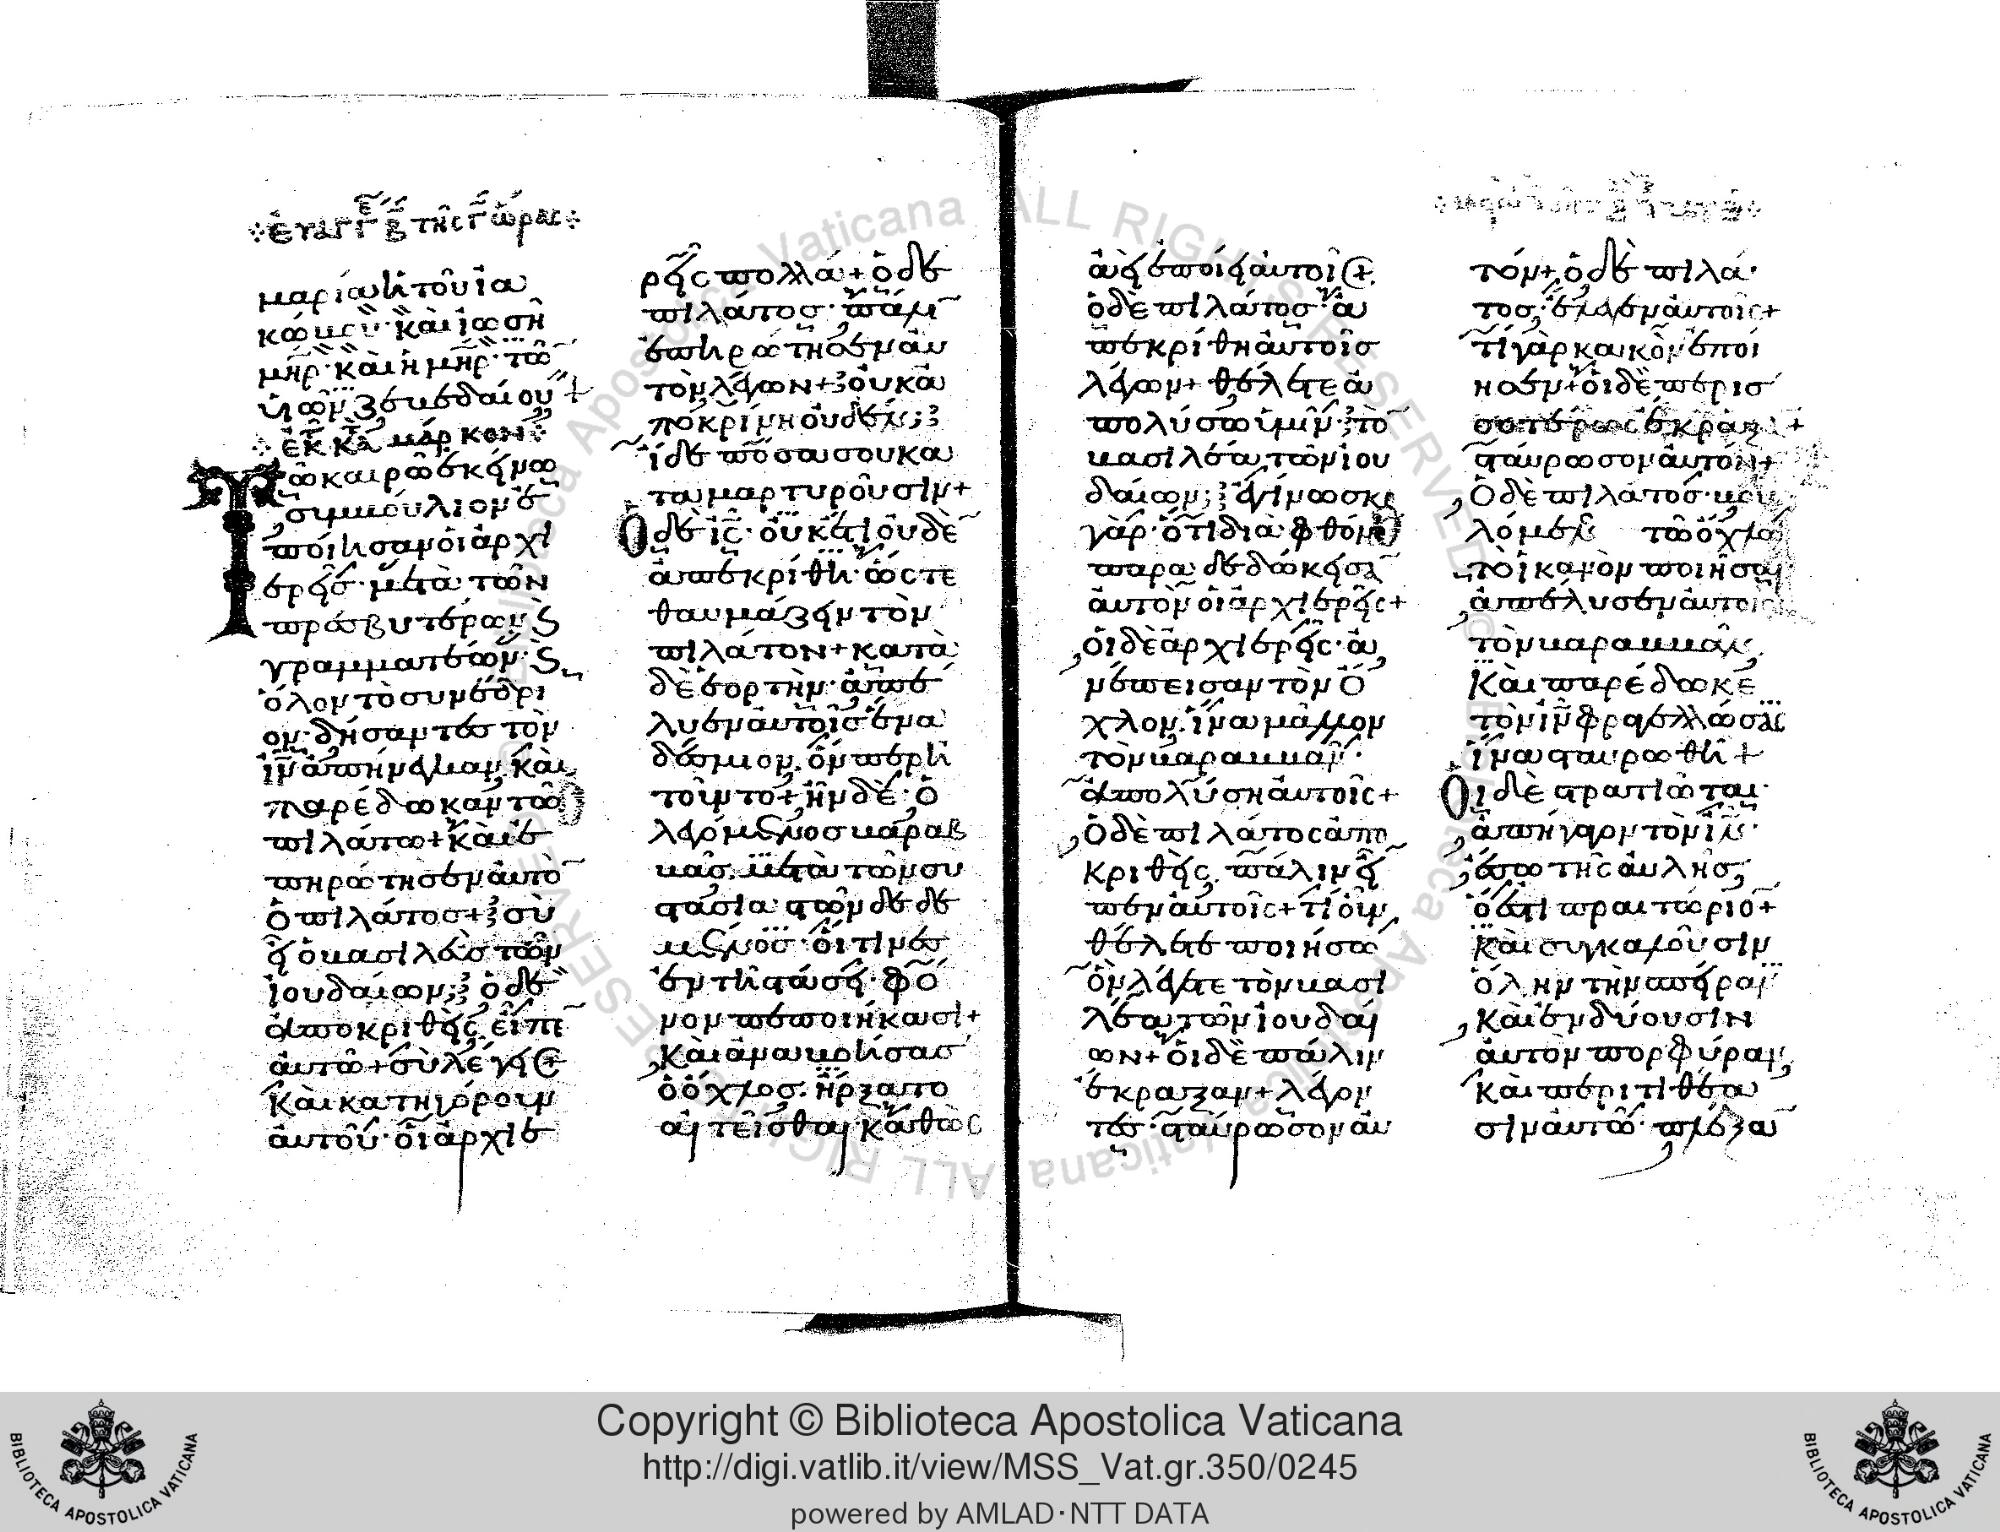 εὐαγγ β τῆς γ ὥρας
μαρία ἡ τοῦ ἰα
κώβου· καὶ ἰωσῆ
μηρ· καὶ ἡ μηρ· τῶ
υἱῶν ζεβεδαίου+
ἐκ κατ μάρκον
Τῶ καιρῶ ἐκείνω
συμβούλιον ἐ
ποίησαν οἱ ἀρχι
ερεῖς· μετὰ τῶν
πρεσβυτέρων καὶ
γραμματέων· καὶ
ὅλον τὸ συνέδρι
ον· δήσαντες τὸν
ιν ἀπήνεγκαν, καὶ
παρέδωκαν τῶ
πιλάτω+ καὶ ἐ
πηρώτησεν αὐτὸ
ὁ πιλάτος+ σὺ
εἶ ὁ βασιλεὺς τῶν
ἰουδαίων; ὁ δὲ
ἀποκριθεὶς, εἶπε
αὐτῶ+ σὺ λέγεις+
καὶ κατηγόρουν
αὐτοῦ· οἱ ἀρχιε
ρεῖς πολλά+ ὁ δὲ
πιλάτος· πάλιν
ἐπηρώτησεν αὐ
τὸν λέγων+ οὐκ ἀ
ποκρίνη οὐδέν;
ἴδε πόσα σου κα
ταμαρτυροῦσιν+
Ὁ δὲ ις· οὐκέτι οὐδὲ
ἀπεκρίθη· ὥστε
θαυμάζειν τὸν
πιλάτον+ κατὰ
δὲ ἑορτὴν· ἀπέ
λυεν αὐτοῖς ἕνα
δέσμιον, ὅνπερ ἠ
τοῦντο+ ἦν δὲ· ὁ
λεγόμενος βαραβ
βᾶς. μετὰ τῶν συ
στασιαστῶν δεδε
μένος· οἵτινες
ἐν τῆ στάσει· φό
νον πεποιήκασι+
καὶ ἀναβοήσας
ὁ ὄχλος. ἤρξατο
αἰτεῖσθαι καθὼς
ἀεὶ ἐποίει αὐτοῖς+
ὁ δὲ πιλάτος· ἀ
πεκρίθη αὐτοῖς
λέγων+ θέλετε ἀ
πολύσω ὑμῖν· τὸ
βασιλέα τῶν ἰου
δαίων; ἐγίνωσκε
γὰρ· ὅτι διὰ φθόνον
παραδεδώκεισα
αὐτὸν οἱ ἀρχιερεῖς+
οἱ δὲ ἀρχιερεῖς· ἀ
νέπεισαν τὸν ὄ
χλον. ἵνα μᾶλλον
τὸν βαραββᾶν·
ἀπολύση αὐτοῖς+
Ὁ δὲ πιλάτος ἀπο
κριθεὶς. πάλιν εἶ
πεν αὐτοῖς+ τί οὖν
θέλετε ποιήσω
ὃν λέγετε τὸν βασι
λέα τῶν ἰουδαί
ων+ οἱ δὲ πάλιν
ἔκραξαν+ λέγον
τες· σταύρωσον αὐ
τόν+ ὁ δὲ πιλά·
τος, ἔλεγεν αὐτοῖς+
τί γὰρ κακὸν ἐποί
ησεν+ οἱ δὲ περισ
σοτέρως ἔκραζον+
σταύρωσον αὐτόν+
Ὁ δὲ πιλάτος· βου
λόμενος τῶ ὄχλω
τὸ ἱκανὸν ποιῆσαι
ἀπέλυσεν αὐτοῖς
τὸν βαραββᾶν.
Καὶ παρέδωκε
τὸν ιν φραγελλώσας
ἵνα σταυρωθῆ+
Οἱ δὲ στρατιῶται·
ἀπήγαγον τὸν ιν·
ἔσω τῆς αὐλῆς,
ὅ ἐστι πραιτώριο+
καὶ συγκαλοῦσιν
ὅλην τὴν σπεῖραν
καὶ ἐνδύουσιν
αὐτὸν πορφύραν,
καὶ περιτιθέα
σιν αὐτῶ· πλέξα
Copyright © Biblioteca Apostolica Vaticana
http://digi.vatlib.it/view/MSS_Vat.gr.350/0245
powered by AMLAD·NTT DATA
BIBLIOTECA APOSTOLICA VATICANA
BIBLIOTECA APOSTOLICA VATICANA